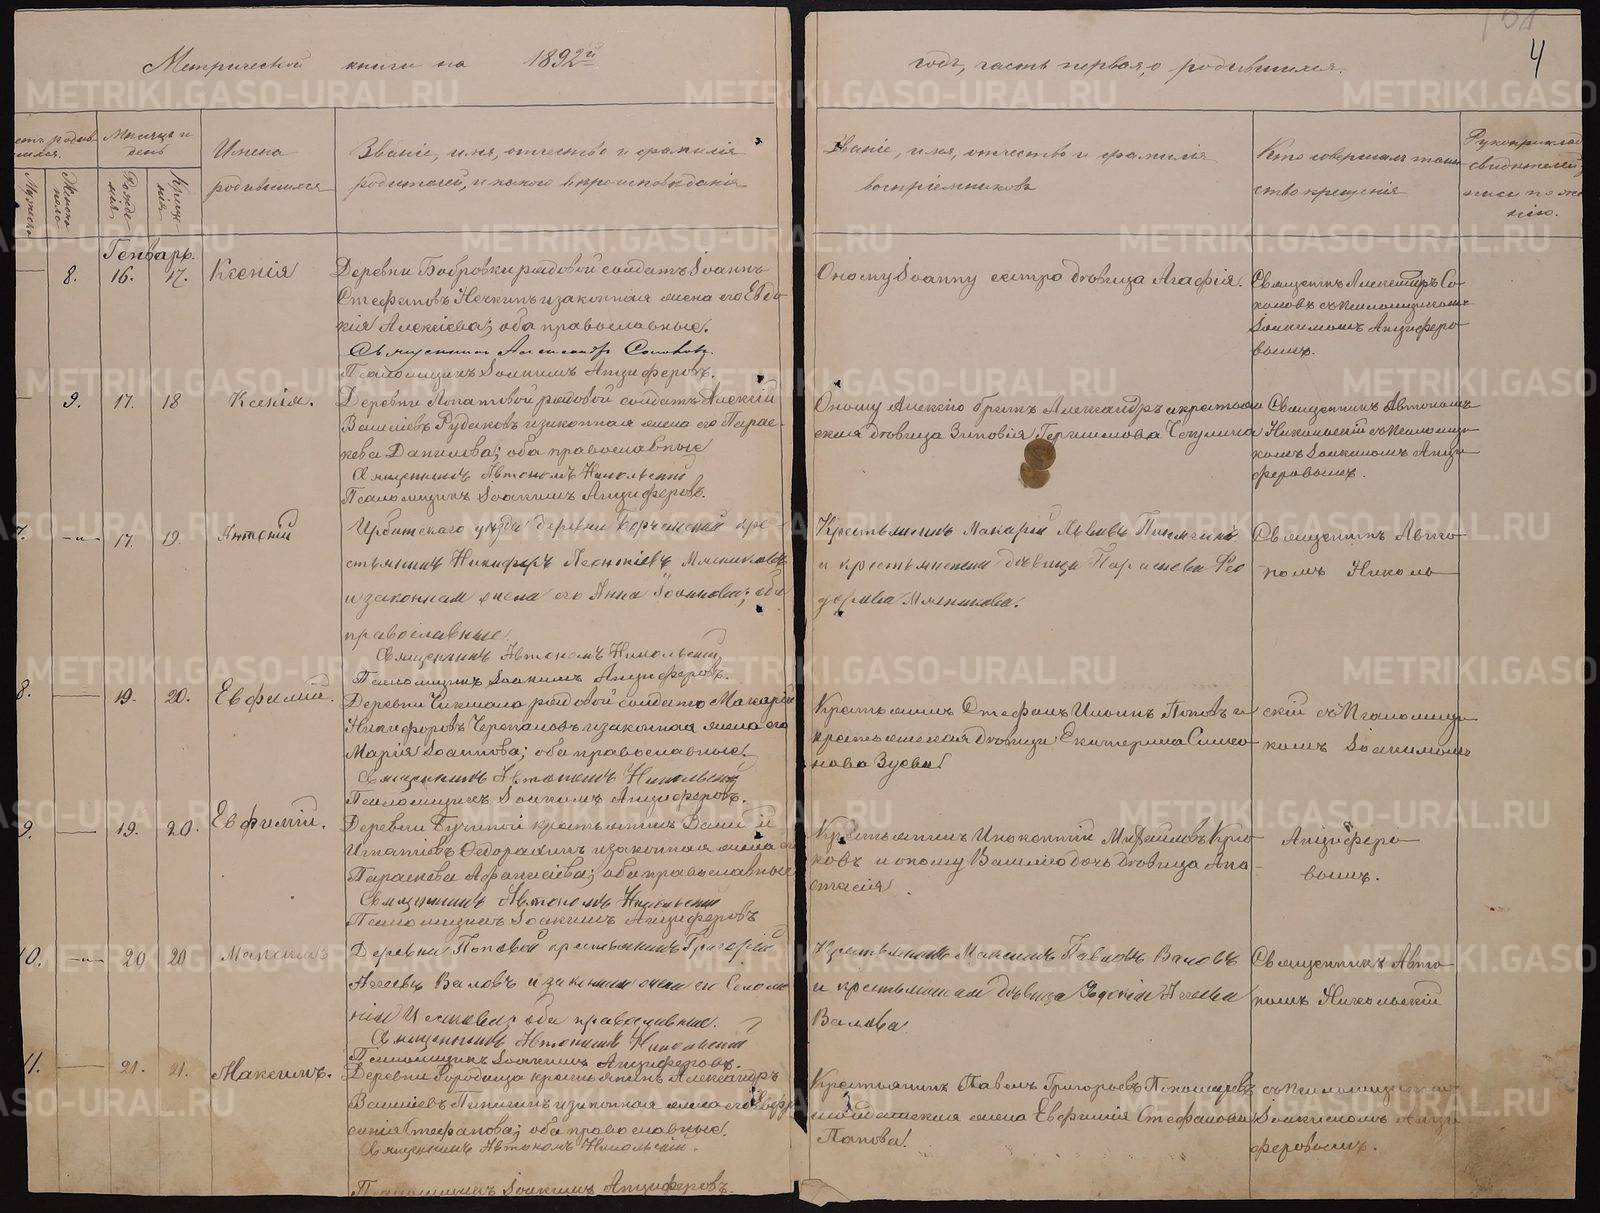 Метрической книги на 1892й
годъ, часть первая, о родившихся.
4
Мѣсяцъ и день
Имена родившихся
Званіе, имя, отчество и фамилія родителей, и какого вѣроисповѣданія
Званіе, имя, отчество и фамилія воспріемниковъ
Кто совершалъ таинство крещенія
Мужеска
Женска пола
Рожденія
Крещенія
Генварь.
8. 16. 17. Ксенія
Деревни Бобровки рядовой солдатъ Іоаннъ
Стефановъ Нечкинъ и законная жена его Евдо-
кія Алексіева; оба православные.
Священникъ Александръ Соколовъ.
Псаломщикъ Іоакимъ Анциферовъ.
Оному Іоанну сестра дѣвица Агафія.
Священ. Александръ Со-
коловъ съ псаломщикомъ
Іоакимомъ Анциферо-
вымъ.
9. 17. 18 Ксенія.
Деревни Лопатовой рядовой солдатъ Алексій
Васильевъ Рудаковъ и законная жена его Парас-
кева Данилова; оба православные
Священникъ Автономъ Никольскій
Псаломщикъ Іоакимъ Анциферовъ.
Оному Алексію братъ Александръ и крестьян
ская дѣвица Зиновія Герасимова Чекулина
Священникъ Автономъ
Никольскій съ псаломщи-
комъ Іоакимомъ Анци-
феровымъ.
7. 17. 19. Антоній
Ирбитскаго уѣзда деревни кре-
стьянинъ Никифоръ Леонтіевъ Мясниковъ
и законная жена его Анна Іоаннова; оба
православные
Священникъ Автономъ Никольскій
Псаломщикъ Іоакимъ Анциферовъ.
Крестьянинъ Макарій Львовъ
и крестьянская дѣвица Параскева Фео
дорова Мясникова.
Священникъ Авто-
номъ Николь-
8. 19. 20. Евфимій.
Деревни Чикмана рядовой солдатъ Макарій
Никифоровъ Черепановъ и законная жена его
Марія Іоаннова; оба православные.
Священникъ Автономъ Никольскій
Псаломщикъ Іоакимъ Анциферовъ.
Крестьянинъ Стефанъ Ильинъ Поповъ и
крестьянская дѣвица Екатерина Симео-
нова Зуева
скій съ Псаломщи-
комъ Іоакимомъ
9. 19. 20. Евфимій.
Деревни Бучиной крестьянинъ Василій
Игнатіевъ Федорахинъ и законная жена его
Параскева Афанасіева; оба православные
Священникъ Автономъ Никольскій
Псаломщикъ Іоакимъ Анциферовъ
Крестьянинъ Инокентій Михайловъ Крю-
ковъ и оному Василію дочь дѣвица Ана-
стасія.
Анциферо-
вымъ.
10. 20 20 Максимъ
Деревни Поповой крестьянинъ Григорій
Агеевъ Валовъ и законная жена его Соломо
нія; оба православные.
Священникъ Автономъ Никольскій
Псаломщикъ Іоакимъ Анциферовъ.
Крестьянинъ Максимъ Павловъ Валовъ
и крестьянская дѣвица Евдокія Агеева
Валова
Священникъ Авто-
номъ Никольскій
11. 21. 21. Максимъ.
Деревни Городища крестьянинъ Александръ
Васильевъ и законная жена его Евфро
синія Стефанова; оба православные.
Священникъ Автономъ Никольскій.
Псаломщикъ Іоакимъ Анциферовъ.
Крестьянинъ Павелъ Григорьевъ
солдатская жена Евфимія Стефанова
Попова.
съ псаломщикомъ
Іоакимомъ Анци-
феровымъ.
METRIKI.GASO-URAL.RU